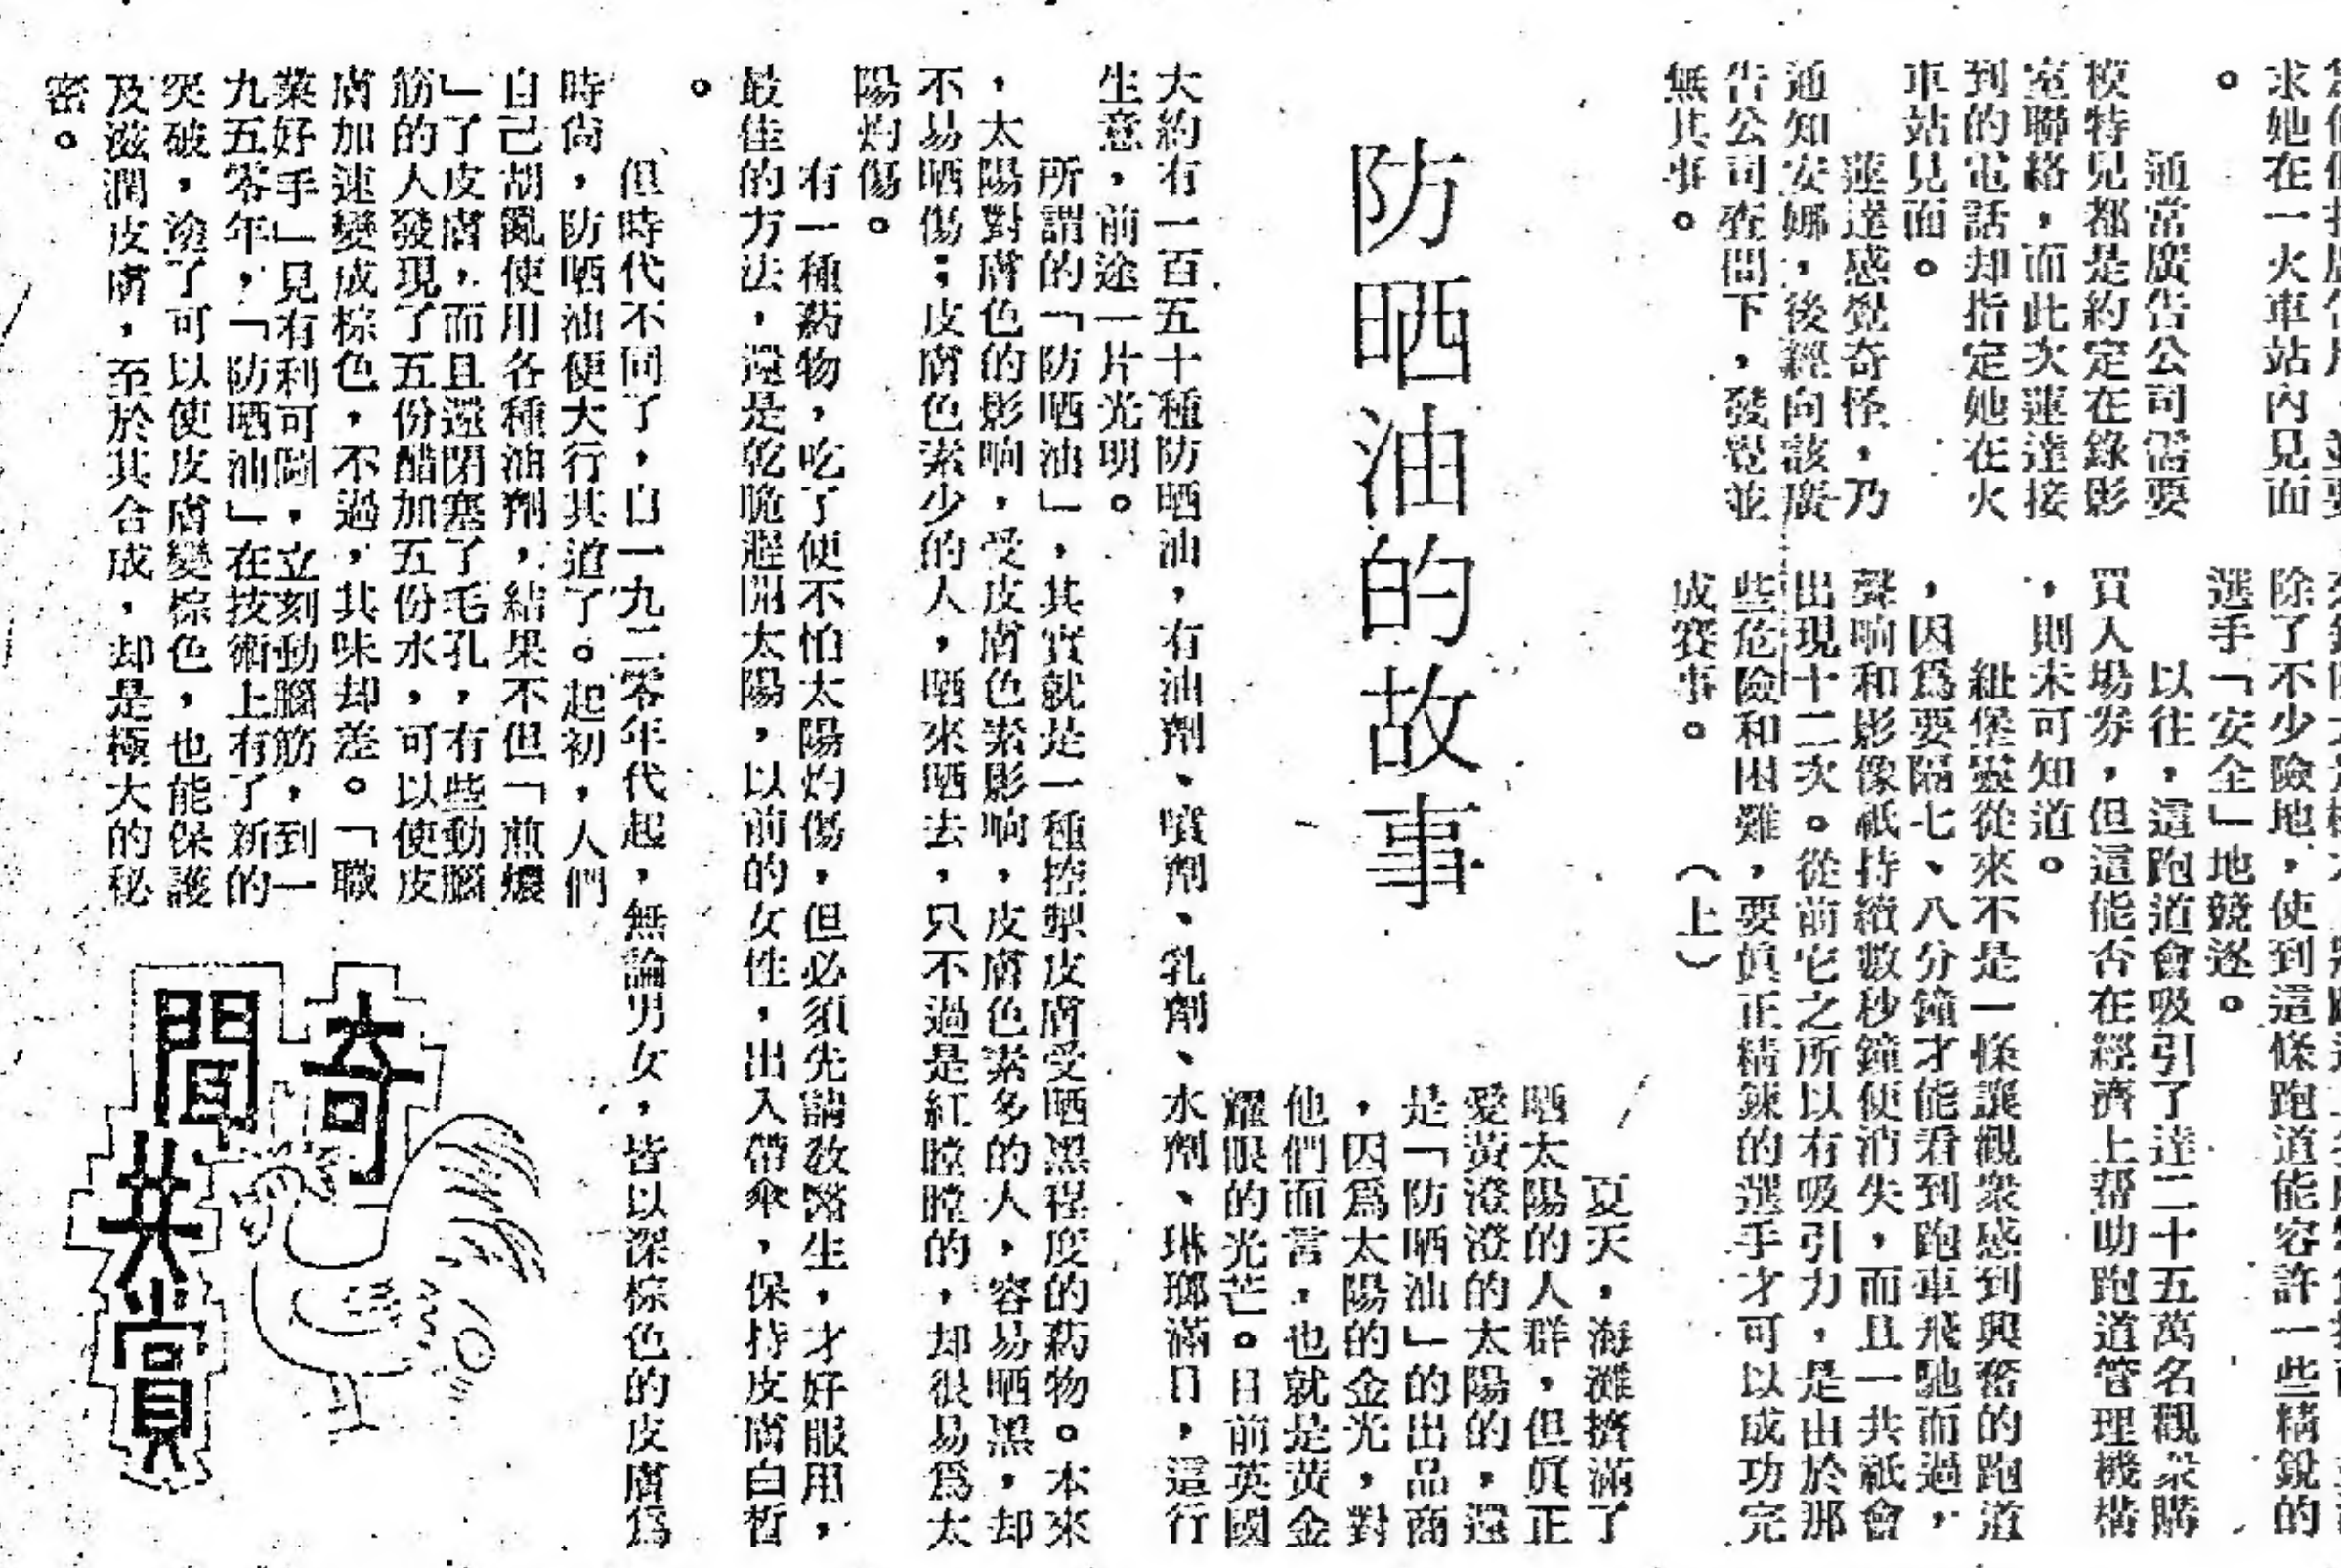 求她在一火車站內見面
。
通常廣告公司需要
模特兒都是約定在錄影
室聯絡，而此次蓮達接
到的電話却指定她在火
車站見面。
蓮達感覺奇怪，乃
通知安娜，後經向該廣
告公司查問下，發覺並
無其事。
除了不少險地，使到這條跑道能容許一些精銳的
選手「安全」地競逐。
以往，這跑道會吸引了達二十五萬名觀衆購
買入場券，但這能否在經濟上帮助跑道管理機構
，則未可知道。
紐堡靈從來不是一條讓觀衆感到興奮的跑道
，因爲要隔七、八分鐘才能看到跑車飛馳而過，
聲响和影像祇持續數秒鐘便消失，而且一共祇會
出現十二次。從前它之所以有吸引力，是由於那
些危險和困難，要眞正精鍊的選手才可以成功完
成賽事。　（上）
防晒油的故事
夏天，海灘擠滿了
晒太陽的人群，但眞正
愛黃澄澄的太陽的，還
是「防晒油」的出品商
，因爲太陽的金光，對
他們而言，也就是黃金
耀眼的光芒。目前英國
大約有一百五十種防晒油，有油劑、噴劑、乳劑、水劑、琳瑯滿目，這行
生意，前途一片光明。
所謂的「防晒油」，其實就是一種控制皮膚受晒黑程度的葯物。本來
，太陽對膚色的影响，受皮膚色素影响，皮膚色素多的人，容易晒黑，却
不易晒傷；皮膚色素少的人，晒來晒去，只不過是紅瞠瞠的，却很易爲太
陽灼傷。
有一種葯物，吃了便不怕太陽灼傷，但必須先請教醫生，才好服用，
最佳的方法，還是乾脆避開太陽，以前的女性，出入帶傘，保持皮膚白皙
。
但時代不同了，自一九二零年代起，無論男女，皆以深棕色的皮膚爲
時尙，防晒油便大行其道了。起初，人們
自己胡亂使用各種油劑，結果不但「煎燶
」了皮膚，而且還閉塞了毛孔，有些動腦
筋的人發現了五份醋加五份水，可以使皮
膚加速變成棕色，不過，其味却差。「職
業好手」見有利可圖，立刻動腦筋，到一
九五零年，「防晒油」在技術上有了新的
突破，塗了可以使皮膚變棕色，也能保護
及滋潤皮膚，至於其合成，却是極大的秘
密。
奇聞共賞